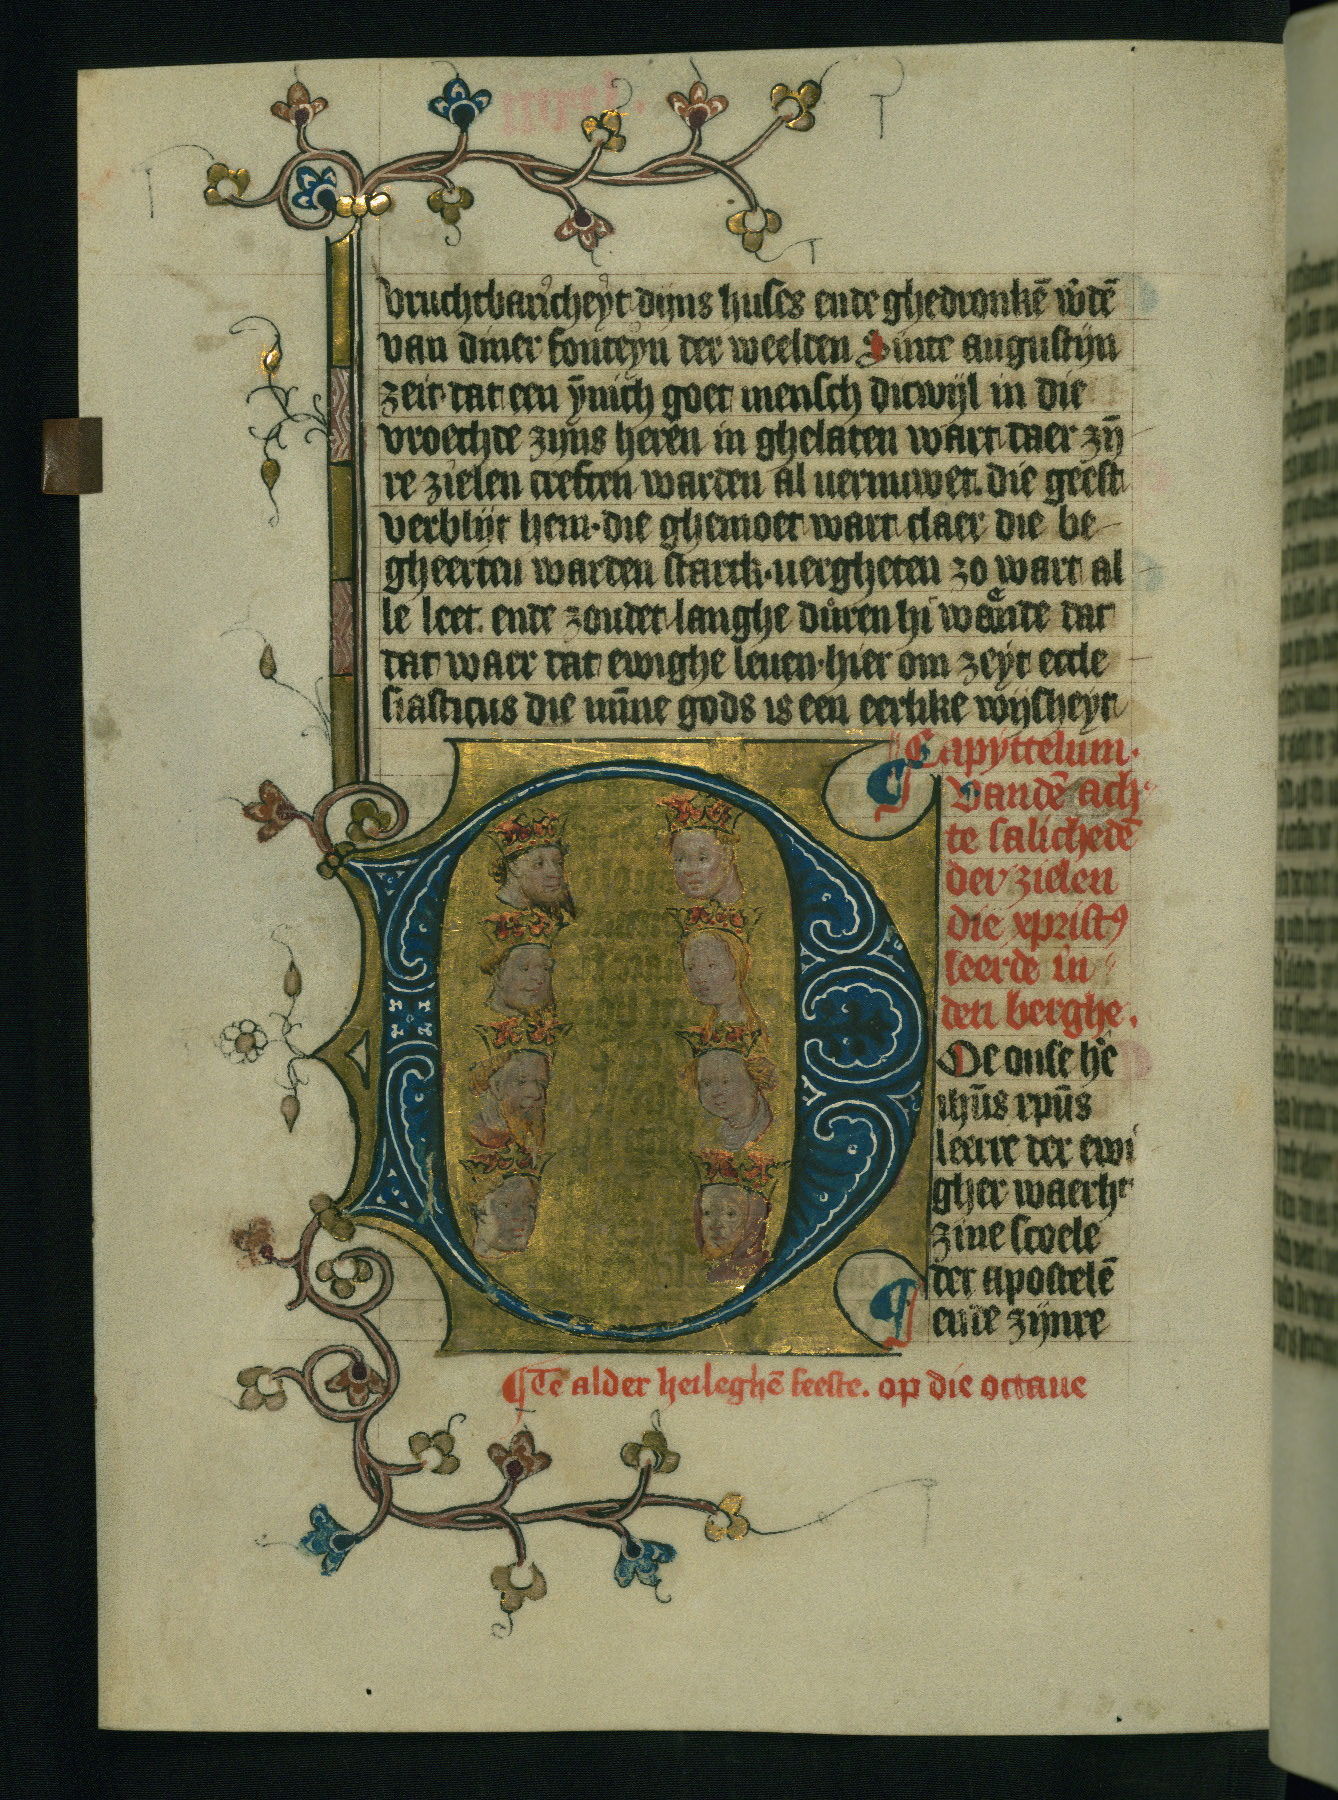 vruchtbaricheyt dijns huses ende ghedronkē w̄dē
van diner fonteyn der weelden Sinte augustijn
zeit dat een ȳnich goet mensch dicwijl in die
vroechde zijns heren in ghelaten wart daer zijn̄
re zielen creften warden al vernuwet. die geest
verblijt hem·die ghemoet wart claer die be
gheerten warden starck·vergheten zo wart al
le leet. ende zoudet langhe dúren hi waende dat
dat waer dat ewighe leuen·hier om zeyt eccle
siasticus die mīne gods is een eerlike wijsheyt
Capyttelum·
Vandē ach
te salichedē
der zielen
die xpristꝰ
leerde in
den berghe.
De onse hē
ihūs xpūs
leerit der ewi
gher waerht
zine scoele
der apostelē
ende zijnre
Te alder heileghē feeste. op die octaue